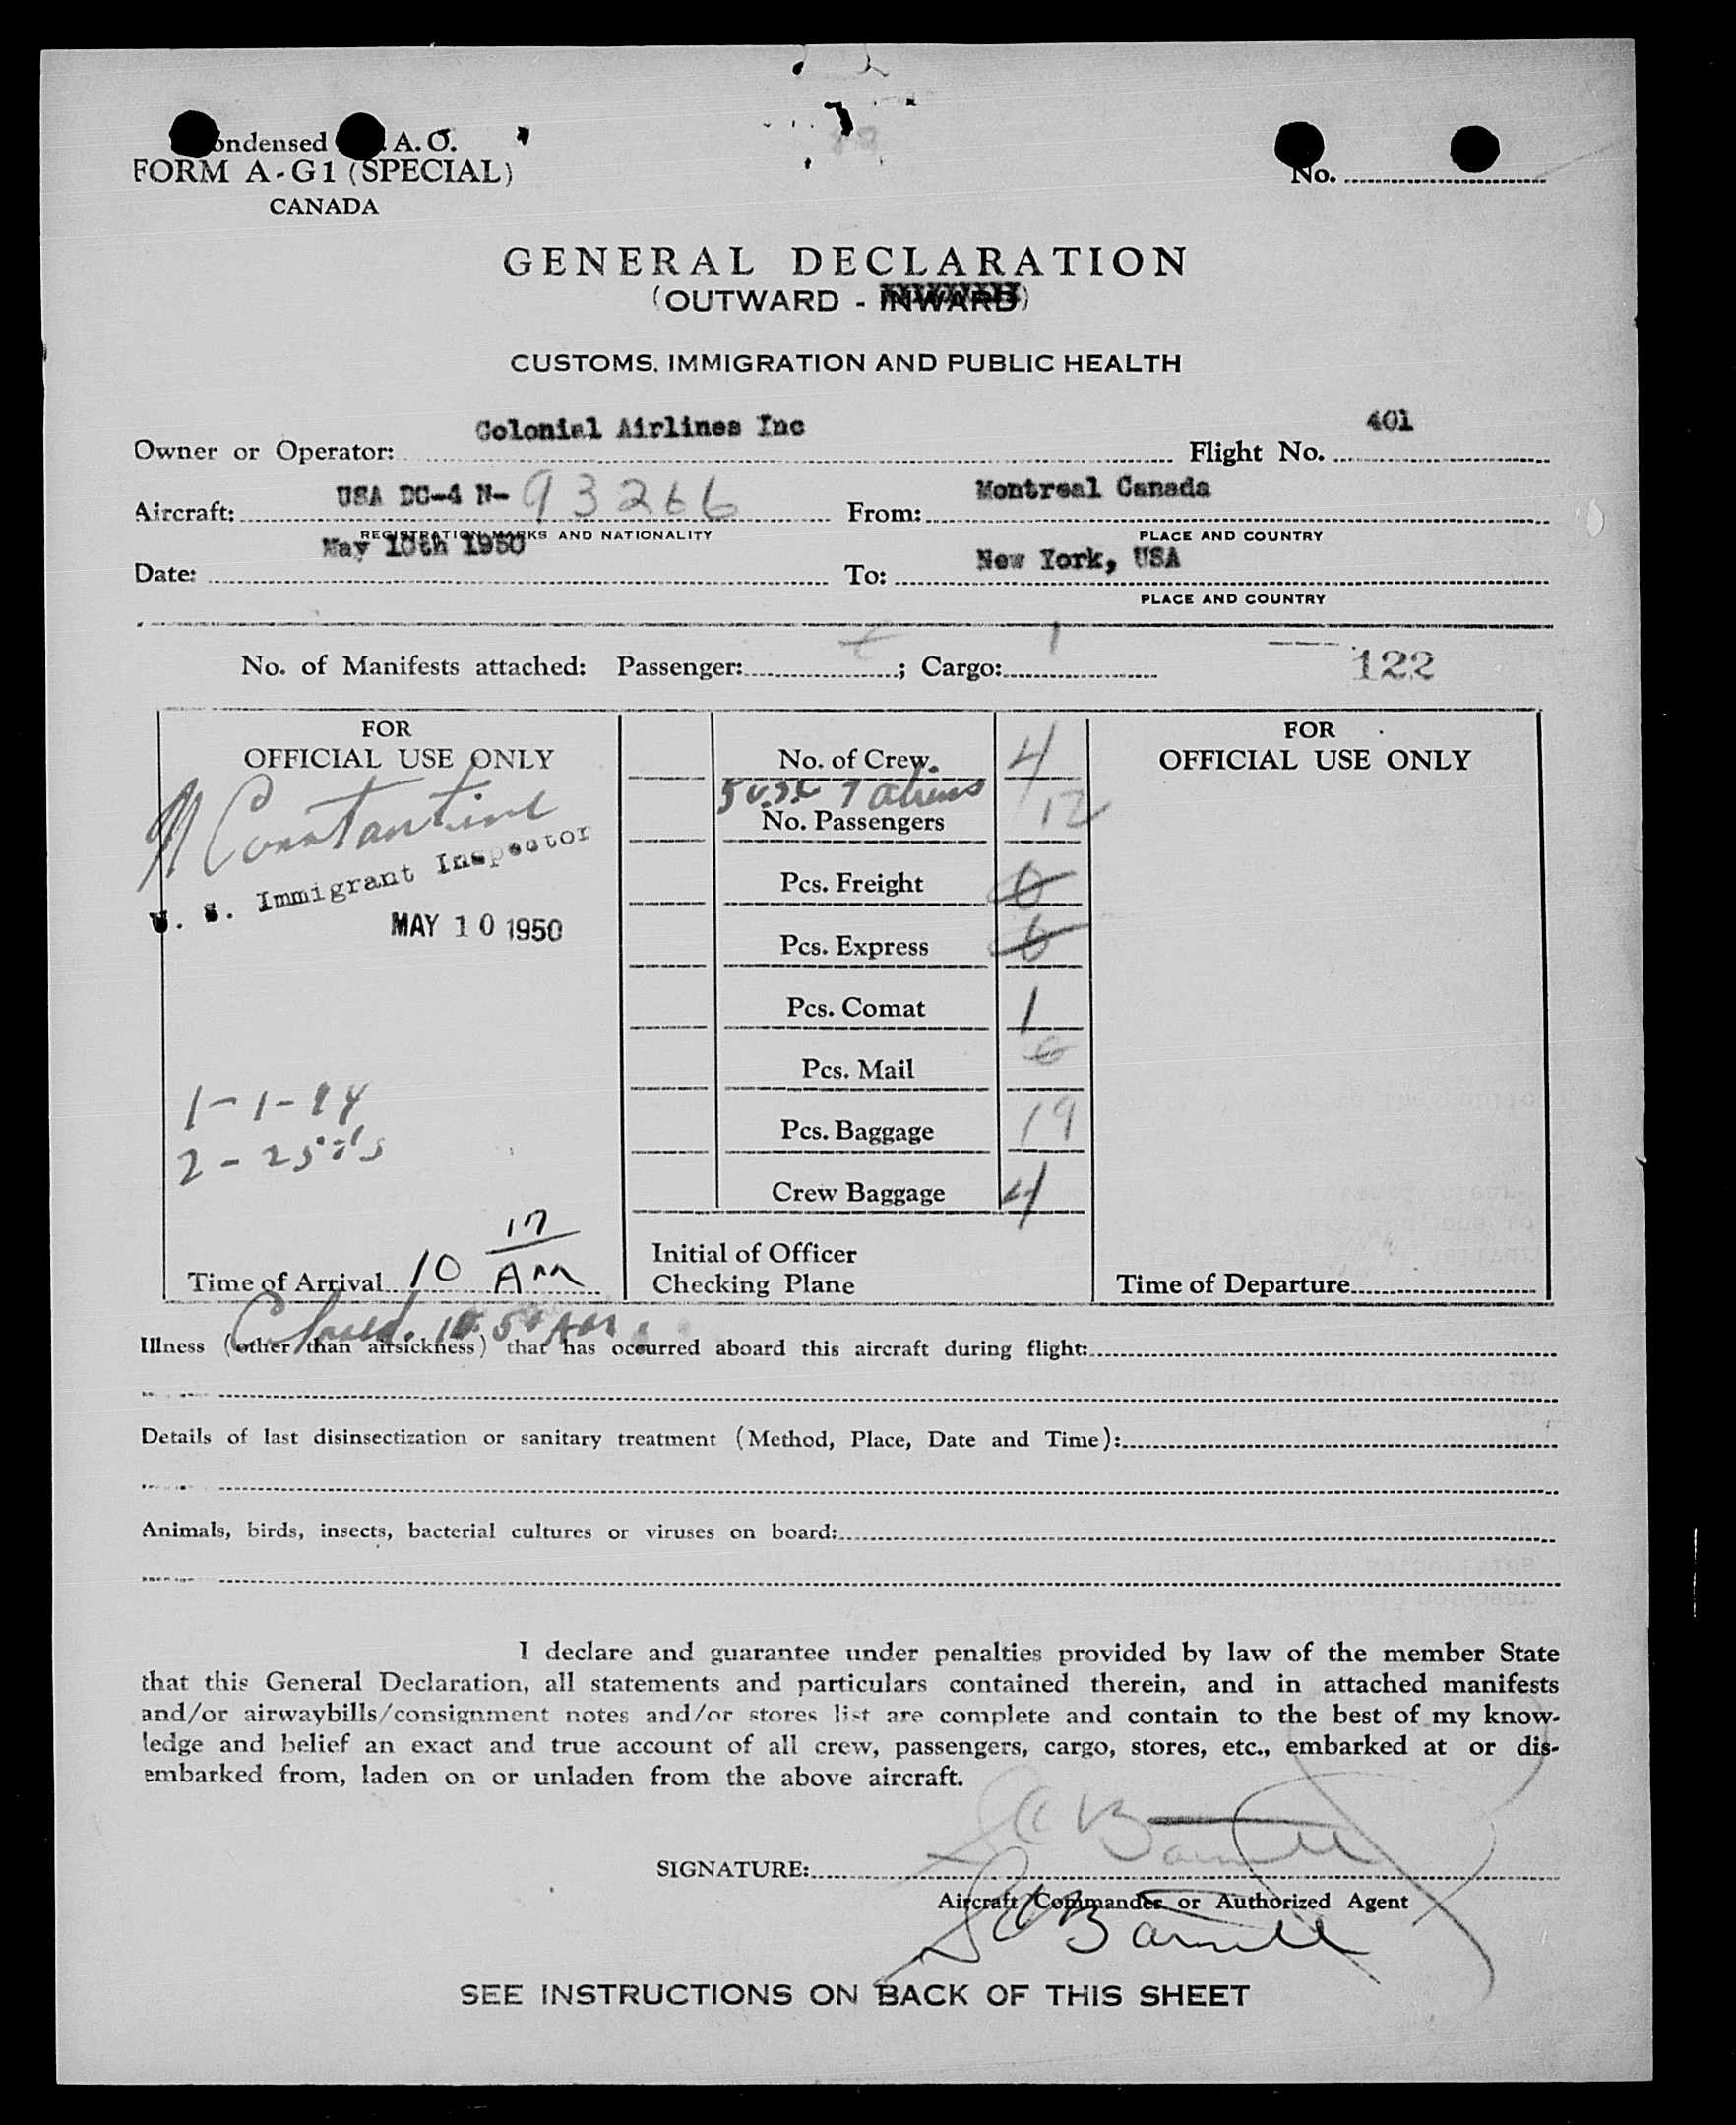 ondensed A. O.
FORM A-G1 (SPECIAL)
CANADA
No.
GENERAL DECLARATION
(OUTWARD - INWARD)
CUSTOMS, IMMIGRATION AND PUBLIC HEALTH
Owner or Operator: Colonial Airlines Inc Flight No. 401
Aircraft: USA DC-4 N- 93266 From: Montreal Canada
REGISTRATION MARKS AND NATIONALITY PLACE AND COUNTRY
Date: May 10th 1950 To: New York, USA
PLACE AND COUNTRY
No. of Manifests attached: Passenger: ; Cargo: 1 122
FOR
OFFICIAL USE ONLY
N Constantine
U. S. Immigrant Inspector
MAY 10 1950
1-1-
2-
Time of Arrival 10 17 AM
Closed. AM
No. of Crew. 4
5 U.S.C 7 aliens
No. Passengers 12
Pcs. Freight 0
Pcs. Express 0
Pcs. Comat 1
Pcs. Mail 0
Pcs. Baggage 19
Crew Baggage 4
Initial of Officer
Checking Plane
FOR
OFFICIAL USE ONLY
Time of Departure
Illness (other than airsickness) that has occurred aboard this aircraft during flight:
Details of last disinsectization or sanitary treatment (Method, Place, Date and Time):
Animals, birds, insects, bacterial cultures or viruses on board:
I declare and guarantee under penalties provided by law of the member State
that this General Declaration, all statements and particulars contained therein, and in attached manifests
and/or airwaybills/consignment notes and/or stores list are complete and contain to the best of my know-
ledge and belief an exact and true account of all crew, passengers, cargo, stores, etc., embarked at or dis-
embarked from, laden on or unladen from the above aircraft.
SIGNATURE:
Aircraft Commander or Authorized Agent
SEE INSTRUCTIONS ON BACK OF THIS SHEET